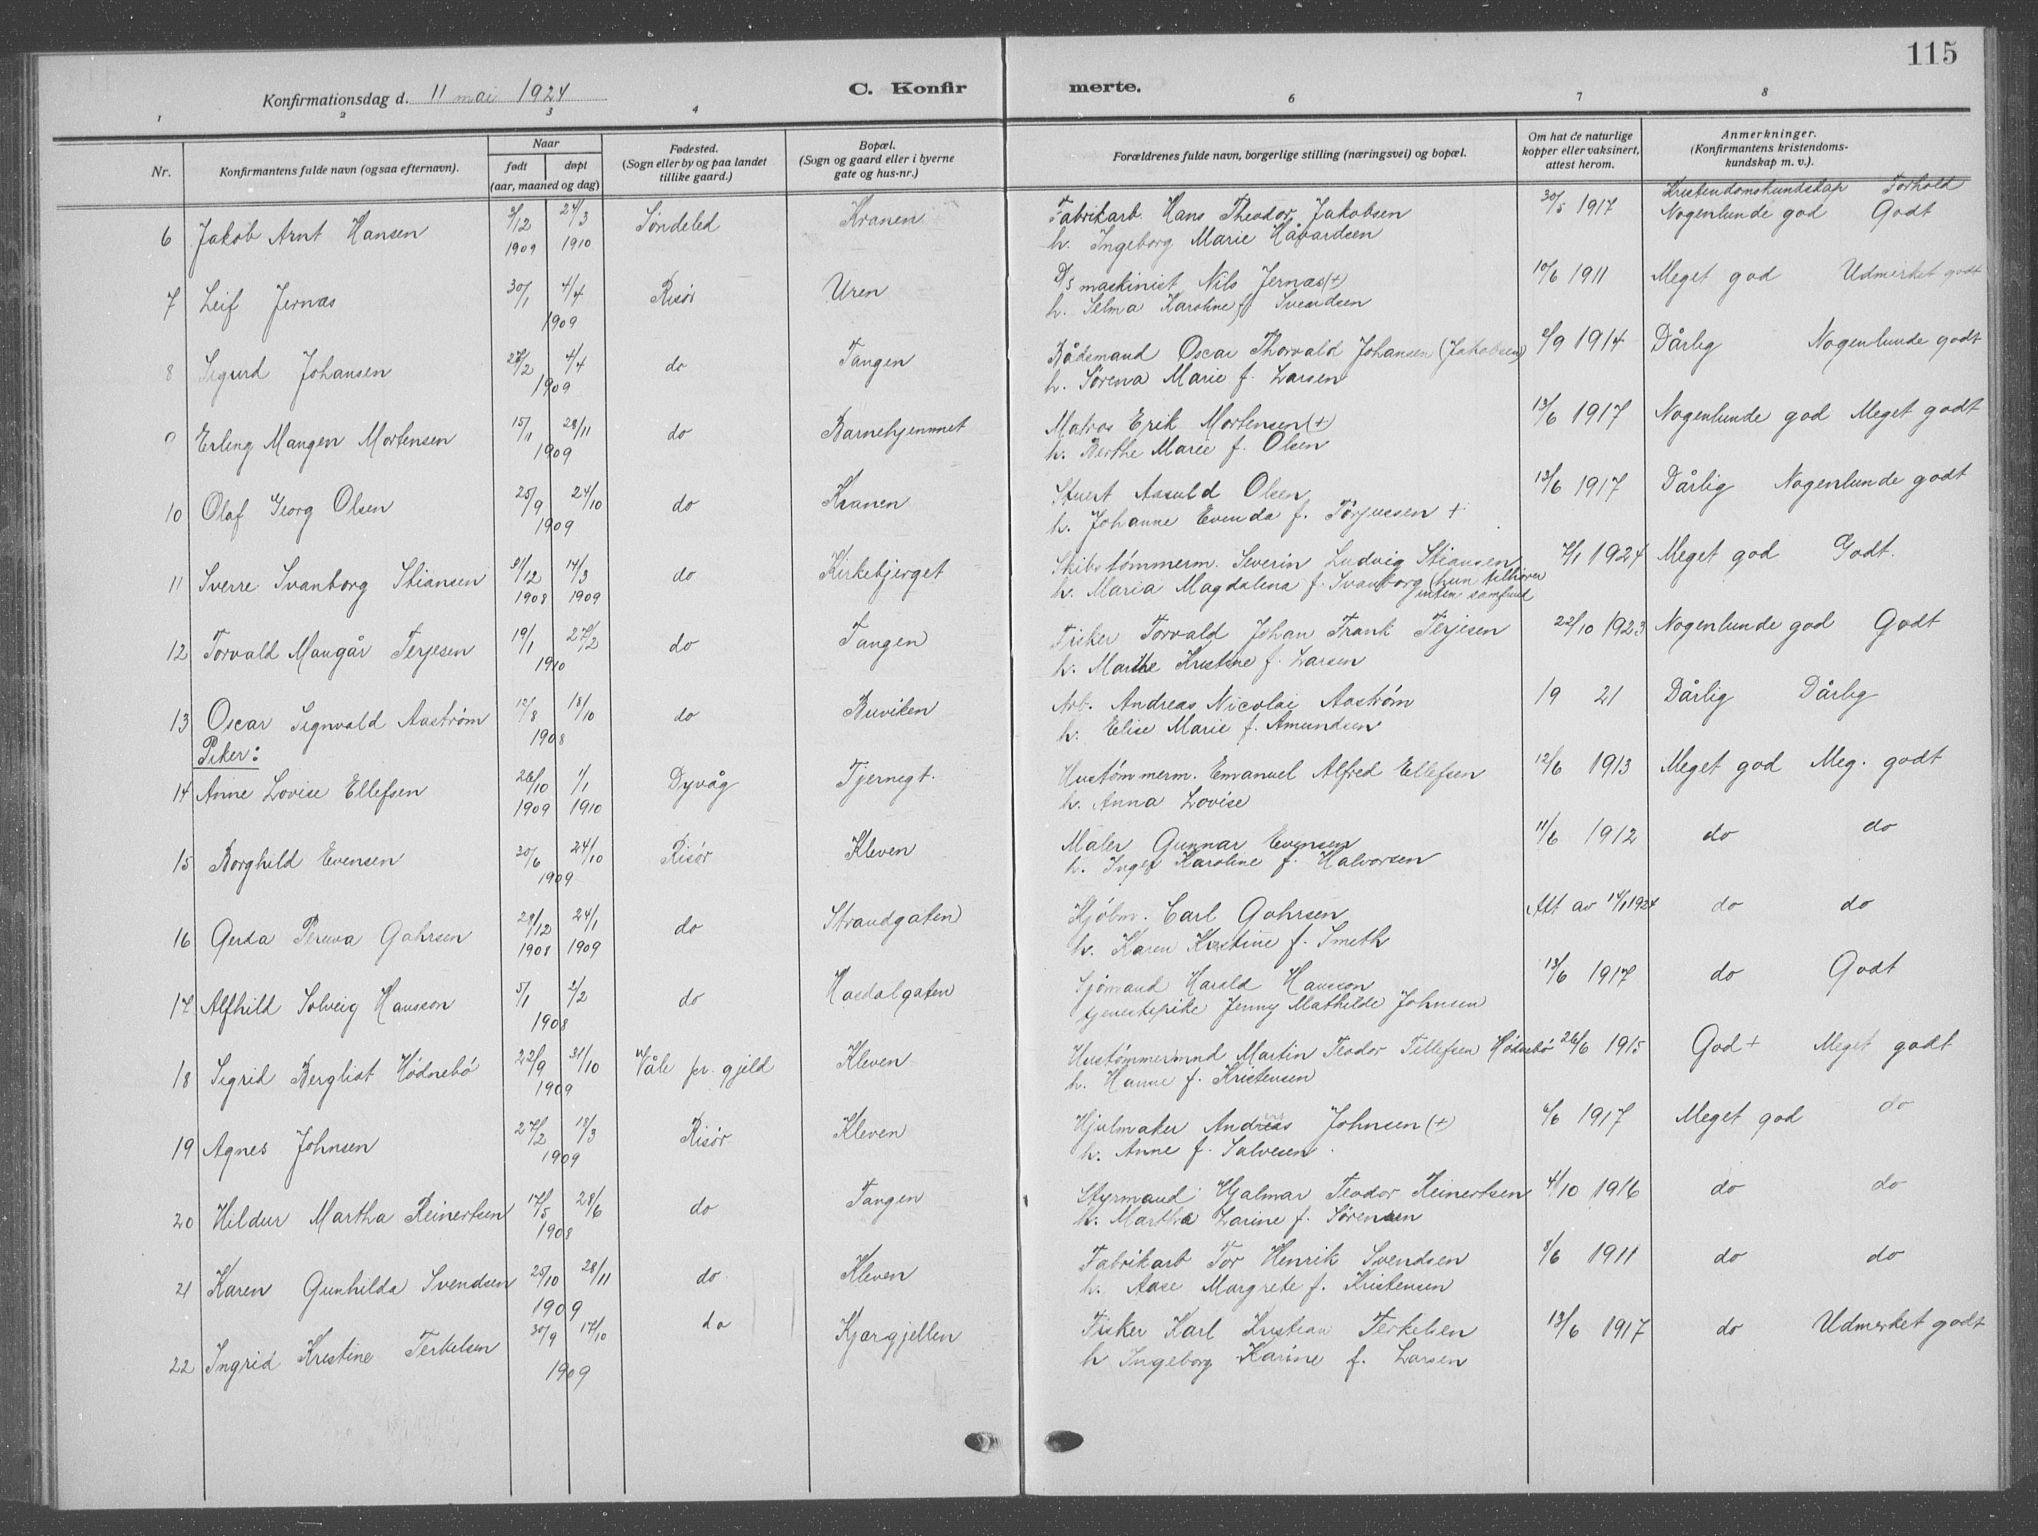 115
Konfirmationsdag d. 11 mai 1924
C. Konfirmerte.
1 2 3 4 6 7 8
Nr. Konfirmantens fulde navn (ogsaa efternavn). Naar født døpt (aar, maaned og dag) Fødested. (Sogn eller by og paa landet tillike gaard.) Bopæl. (Sogn og gaard eller i byerne gate og hus-nr.) Forældrenes fulde navn, borgerlige stilling (næringsvei) og bopæl. Om hat de naturlige kopper eller vaksinert, attest herom. Anmerkninger. (Konfirmantens kristendoms-kundskap m. v.).
Kristendomskundskap Forhold
6 Jakob Arnt Hansen 9/12 1909 24/3 1910 Søndeled Kranen Fabrikarb. Hans Theodor Jakobsen 30/5 1917 Nogenlunde god Godt
h. Ingeborg Marie Håvardsen
7 Leif Jernæs 30/1 4/4 1909 Risør Uren D/S maskinist Nils Jernæs (+) 10/6 1911 Meget god Udmerket godt
h. Selma Karoline f. Svendsen
8 Sigurd Johansen 27/2 4/4 1909 do Tangen Bådsmand Oscar Thorvald Johansen (Jakobsen) 2/9 1914 Dårlig Nogenlunde godt
h. Sørena Marie f. Larsen
9 Erling Mangen Mortensen 15/1 28/11 1909 do Barnehjemmet Matros Erik Mortensen (+) 13/6 1917 Nogenlunde god Meget godt
h. Berthe Marie f. Olsen
10 Olaf Georg Olsen 25/9 24/10 1909 do Kranen Stuert Aasuld Olsen 13/6 1917 Dårlig Nogenlunde godt
h. Johanne Evenda f. Torjussen +
11 Sverre Svanborg Stiansen 31/12 1908 14/3 1909 do Kirkebjerget Skibstømmerm. Severin Ludvig Stiansen 7/1 1924 Meget god Godt.
h. Maria Magdalena f. Svanborg (hun tilhører intm samfund
12 Torvald Mangår Terjesen 19/1 27/2 1910 do Tangen Fisker Torvald Johan Frank Terjesen 22/10 1923 Nogenlunde god Godt
h. Marthe Kristine f. Larsen
13 Oscar Signvald Aastrøm 12/8 18/10 1908 do Buviken Arb. Andreas Nicolai Aastrøm 19 21 Dårlig Dårlig
h. Elise Marie f. Amundsen
Piker:
14 Anne Lovise Ellefsen 26/10 1909 1/1 1910 Dyvåg Tjernegt. Hustømmerm. Emanuel Alfred Ellefsen 12/6 1913 Meget god Meg. godt
h. Anna Lovise
15 Borghild Evensen 30/6 24/10 1909 Risør Kleven Maler Gunnar Evensen 11/6 1912 do do
h. Inger Karoline f. Halvorsen
16 Gerda Gahrsen 29/12 1908 24/1 1909 do Strandgaten Kjøbm. Carl Gahrsen Att av 14/1 1924 do do
h. Karen Kristine f. Smeth
17 Alfhild Solveig Hansson 5/1 2/2 1908 do Hasdalgaten Sjømand Harald Hansson 13/6 1917 do Godt
tjenestepike Jenny Mathilde Johnsen
18 Sigrid Bergliot Hødnebø 22/9 31/10 1909 Våle pr. gjeld Kleven Hustømmermnd Martin Teodor Tellefsen Hødnebø 26/6 1915 God + Meget godt
h. Hanne f. Kristensen
19 Agnes Johnsen 27/2 18/3 1909 Risør Kleven Hjulmaker Andreas Johnsen (+) 6/6 1917 Meget god do
h. Anne f. Salvesen
20 Hildur Martha Reinertsen 17/5 28/6 1908 do Tangen Styrmand Hjalmar Teodor Reinertsen 4/10 1916 do do
h. Martha Larine f. Sørensen
21 Karen Gunhilda Svendsen 25/10 28/11 1909 do Kleven Fabrikarb Tor Henrik Svendsen 8/6 1911 do do
h. Aase Margrete f. Kristensen
22 Ingrid Kristine Terkelsen 30/9 17/10 1909 do Kjærgjellen Fisker Karl Kristian Terkelsen 13/6 1917 do Udmerket godt
h Ingeborg Karine f. Larsen